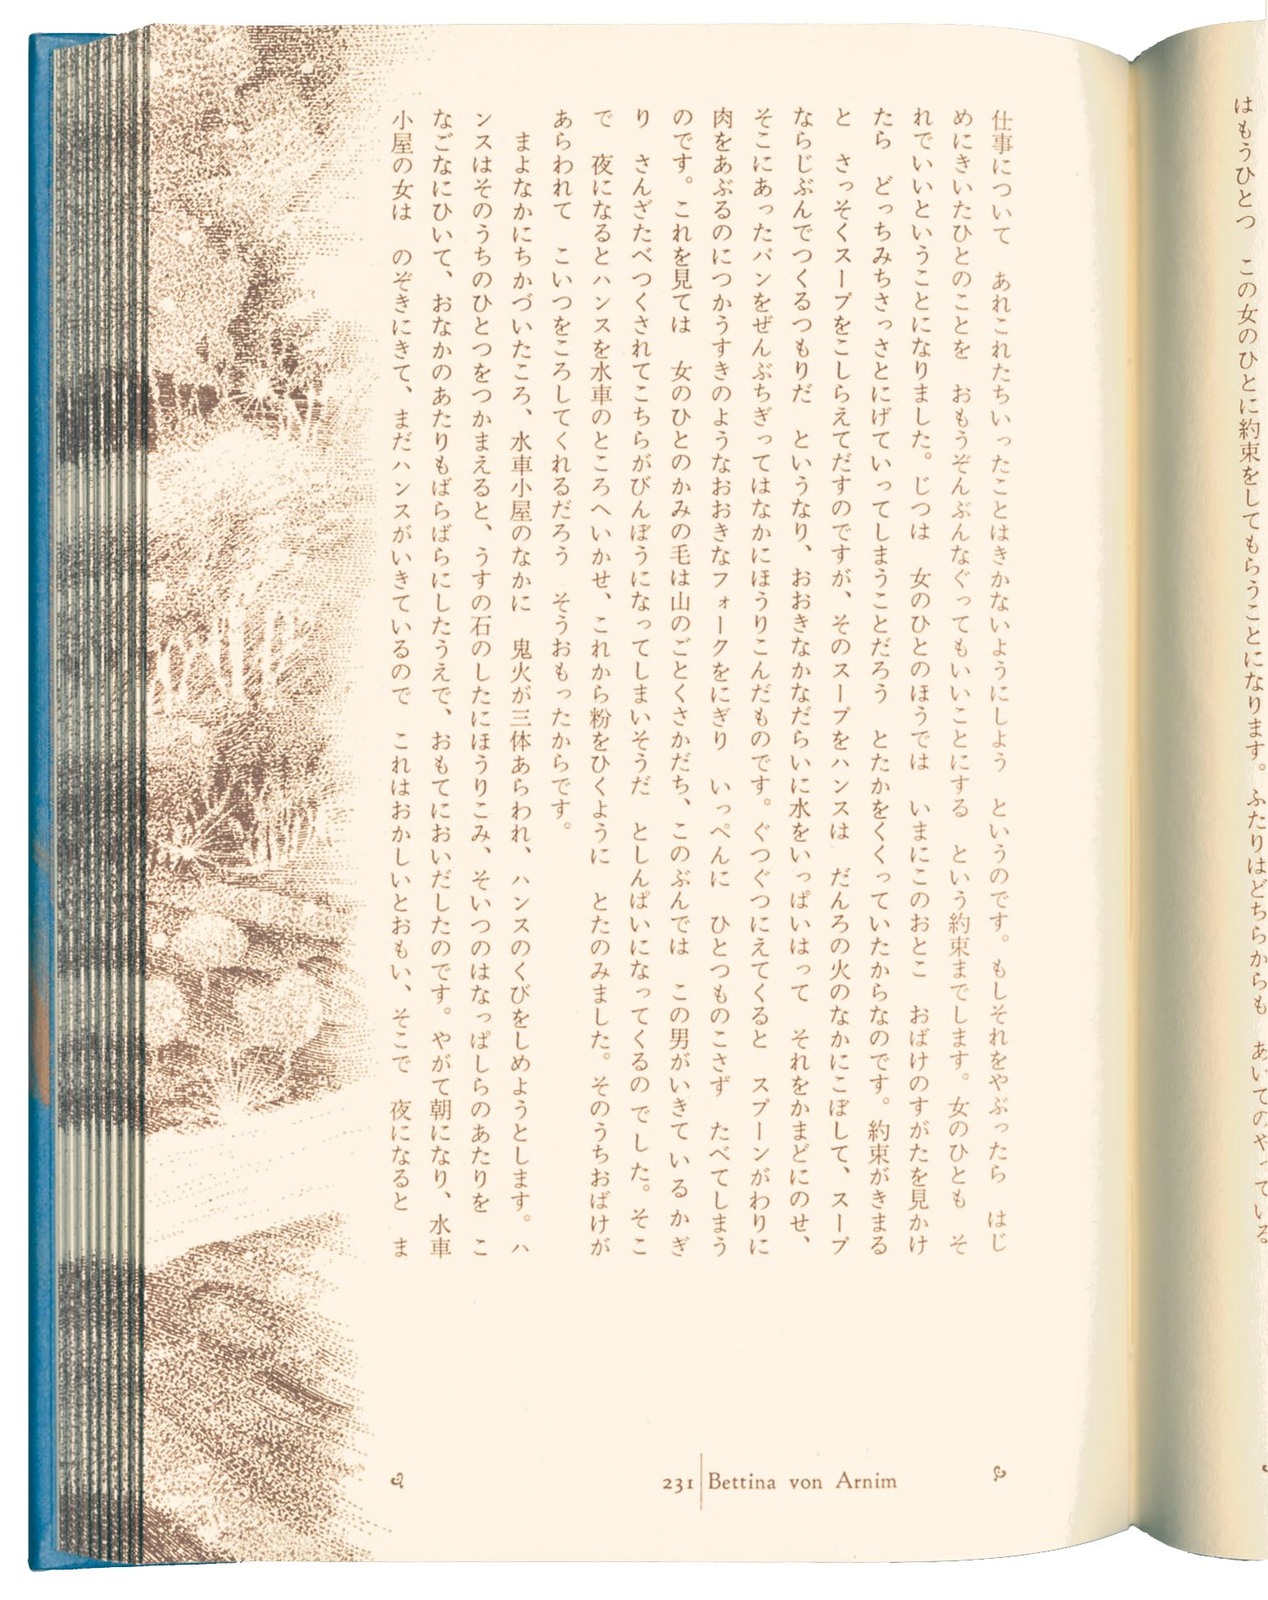 はもうひとつ　この女のひとに約束をしてもらうことになります。ふたりはどちらからも　あいてのやっている
仕事について　あれこれたちいったことはきかないようにしよう　というのです。もしそれをやぶったら　はじ
めにきいたひとのことを　おもうぞんぶんなぐってもいいことにする　という約束までします。女のひとも　そ
れでいいということになりました。じつは　女のひとのほうでは　いまにこのおとこ　おばけのすがたを見かけ
たら　どっちみちさっさとにげていってしまうことだろう　とたかをくくっていたからなのです。約束がきまる
と　さっそくスープをこしらえてだすのですが、そのスープをハンスは　だんろの火のなかにこぼして、スープ
ならじぶんでつくるつもりだ　というなり、おおきなかなだらいに水をいっぱいはって　それをかまどにのせ、
そこにあったパンをぜんぶちぎってはなかにほうりこんだものです。ぐつぐつにえてくると　スプーンがわりに
肉をあぶるのにつかうすきのようなおおきなフォークをにぎり　いっぺんに　ひとつものこさず　たべてしまう
のです。これを見ては　女のひとのかみの毛は山のごとくさかだち、このぶんでは　この男がいきているかぎ
り　さんざたべつくされてこちらがびんぼうになってしまいそうだ　としんぱいになってくるのでした。そこ
で　夜になるとハンスを水車のところへいかせ、これから粉をひくように　とたのみました。そのうちおばけが
あらわれて　こいつをころしてくれるだろう　そうおもったからです。
まよなかにちかづいたころ、水車小屋のなかに　鬼火が三体あらわれ、ハンスのくびをしめようとします。ハ
ンスはそのうちのひとつをつかまえると、うすの石のしたにほうりこみ、そいつのはなっぱしらのあたりを　こ
なごなにひいて、おなかのあたりもばらばらにしたうえで、おもてにおいだしたのです。やがて朝になり、水車
小屋の女は　のぞきにきて、まだハンスがいきているので　これはおかしいとおもい、そこで　夜になると　ま
231 Bettina von Arnim